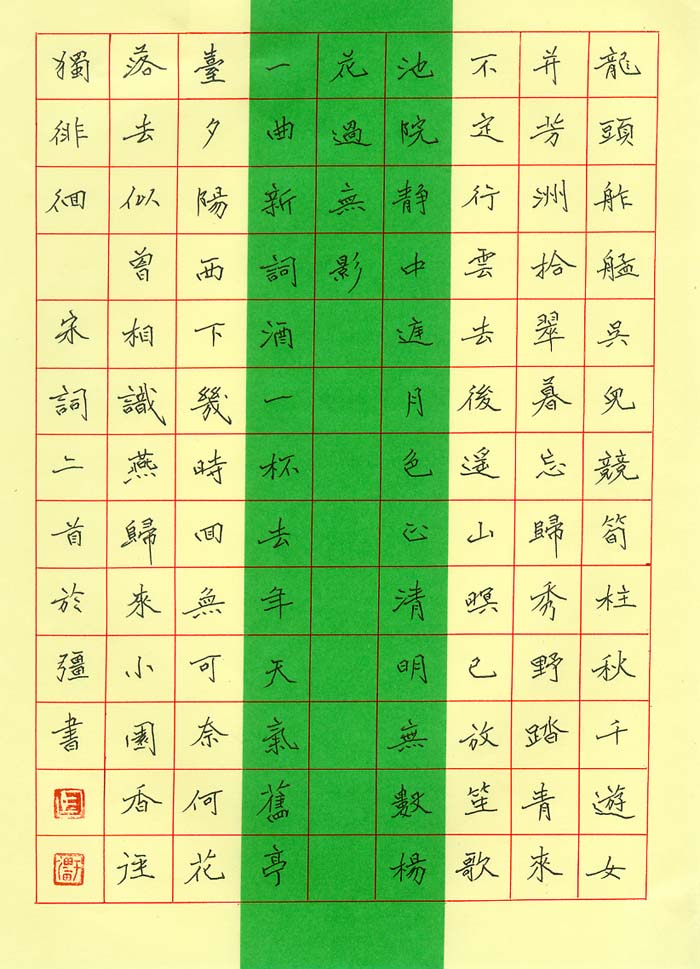 龍頭舴艋吳兒競筍柱秋千遊女
并芳洲拾翠暮忘歸秀野踏青來
不定行雲去後遙山暝已放笙歌
池院靜中庭月色正清明無數楊
花過無影
一曲新詞酒一杯去年天氣舊亭
臺夕陽西下幾時回無可奈何花
落去似曾相識燕歸來小園香徑
獨徘徊 宋詞二首於疆書